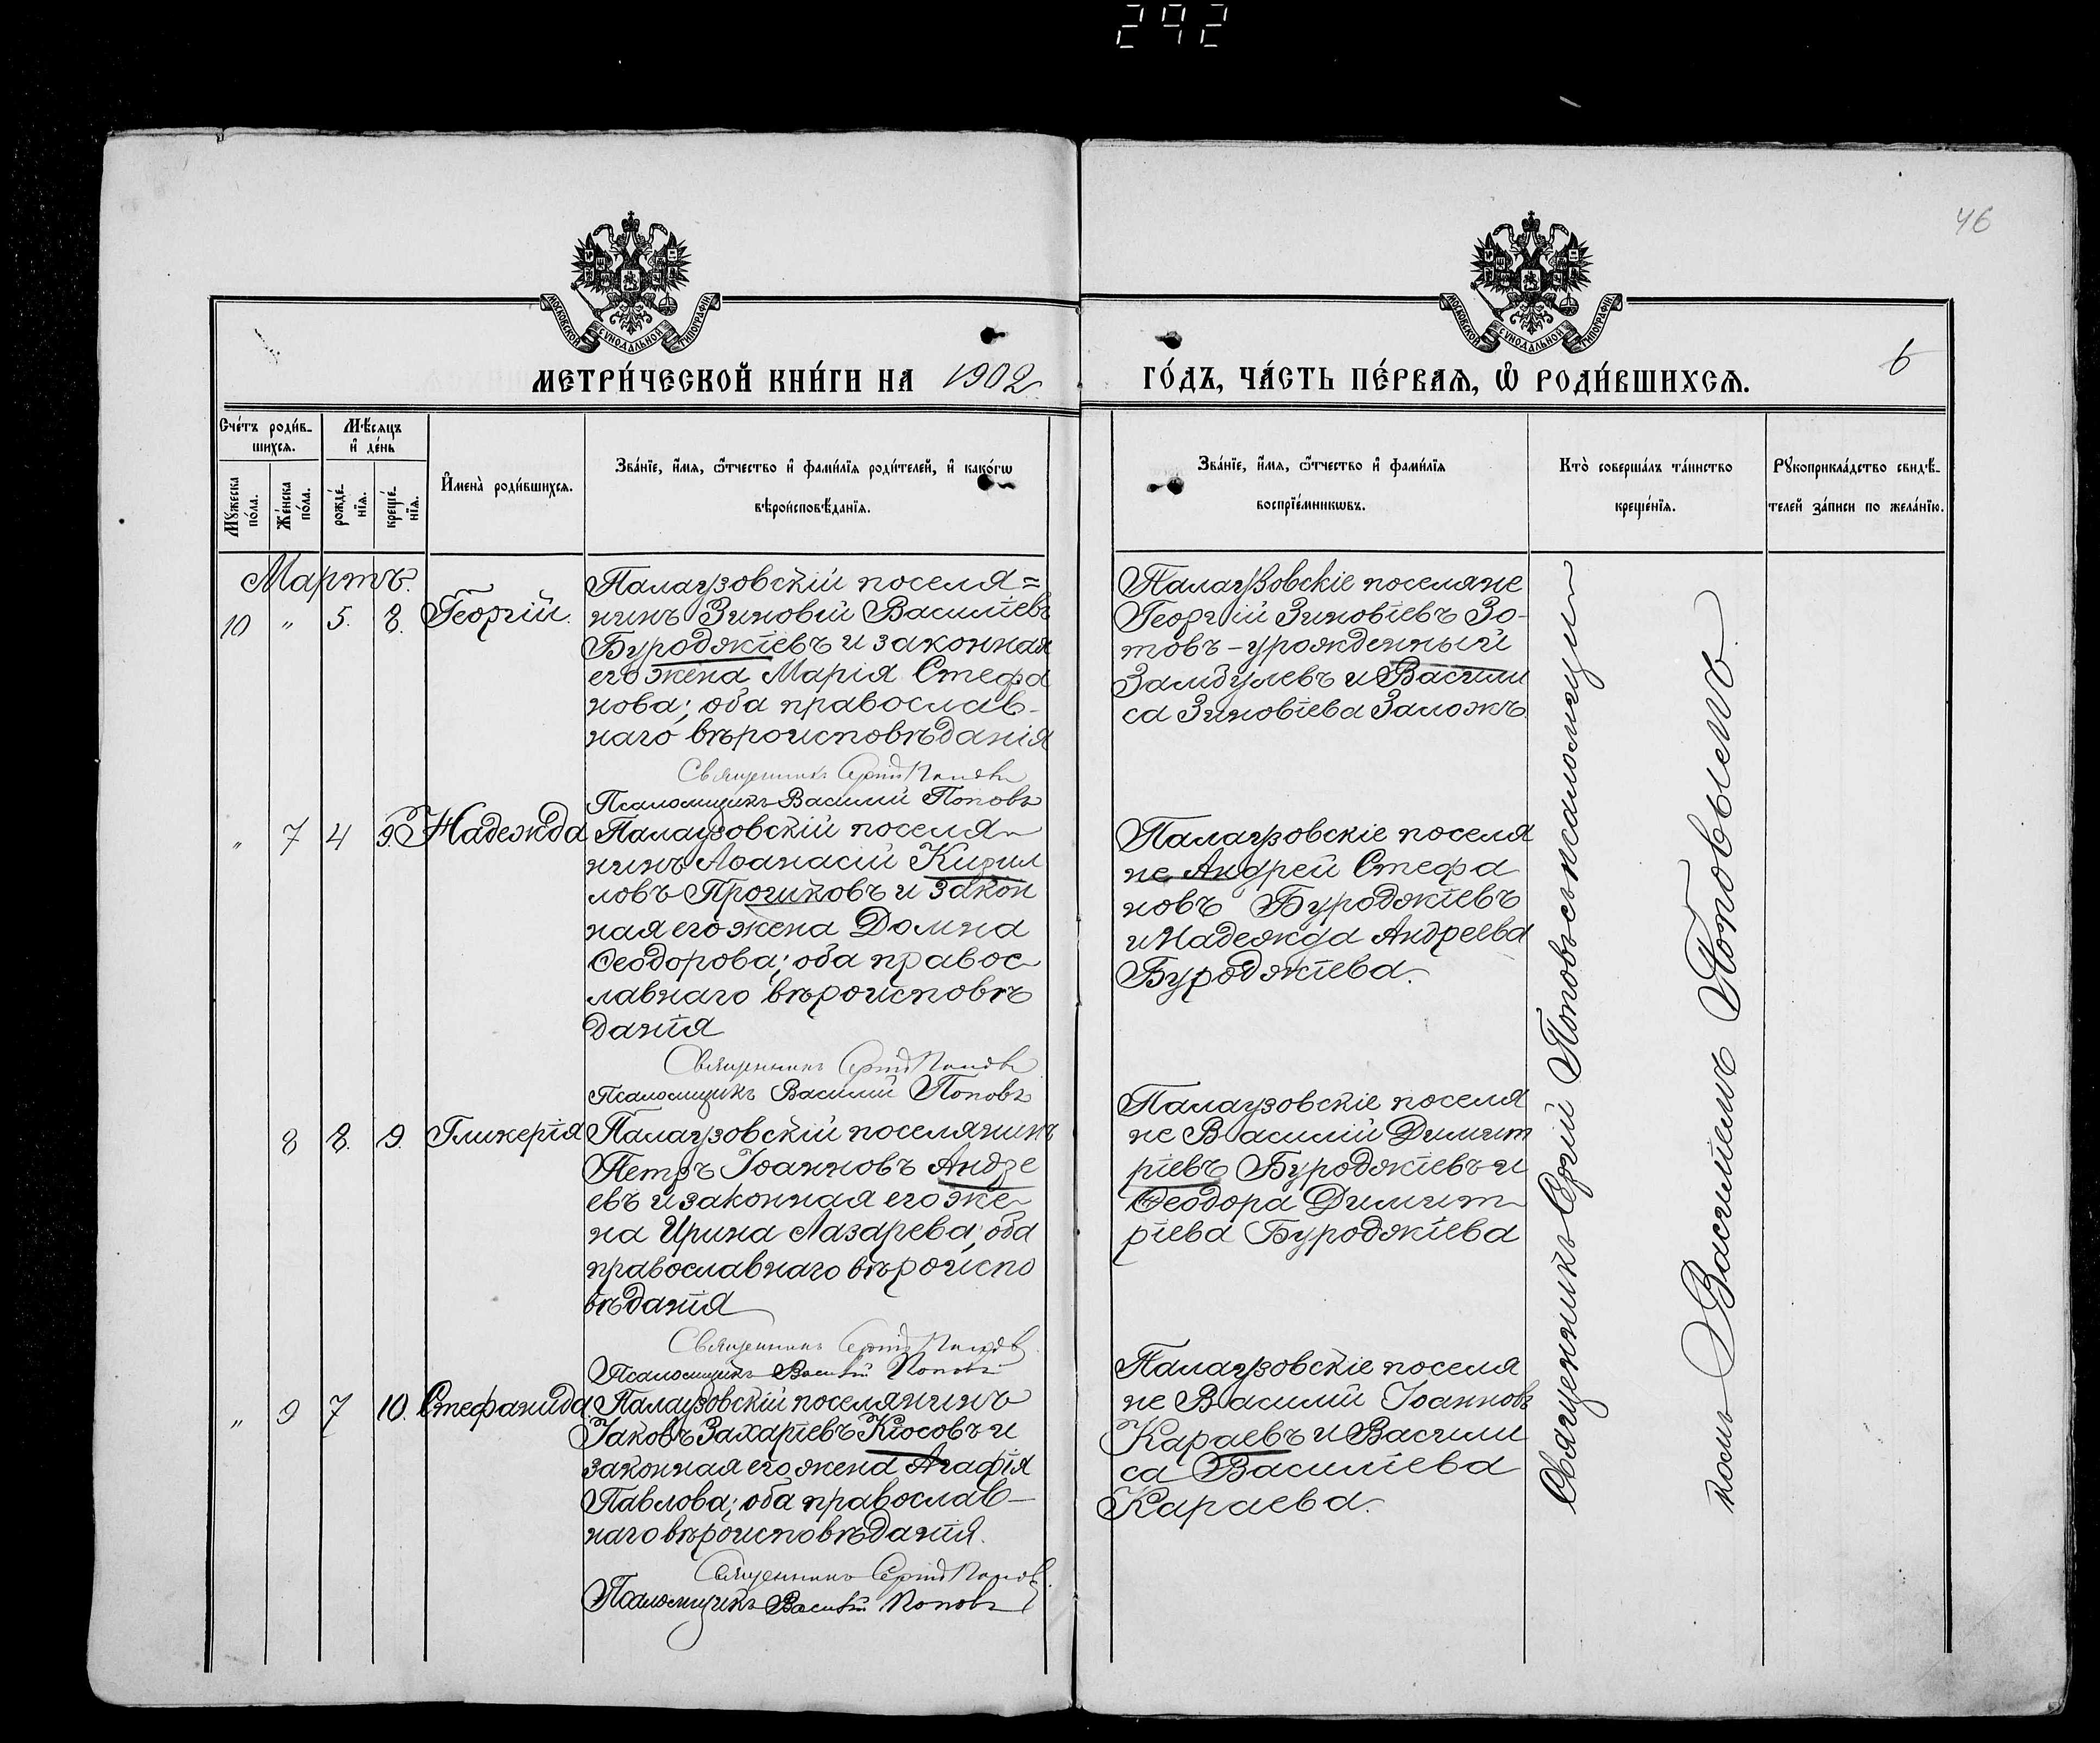 292
46
МОСКОВСКОЙ СѴНОДАЛЬНОЙ ТИПОГРАФІИ
МОСКОВСКОЙ СѴНОДАЛЬНОЙ ТИПОГРАФІИ
МЕТРИ́ЧЕСКОЙ КНИ́ГИ НА 1902
ГО́ДЪ, ЧА́СТЬ ПЕ́РВАѦ, Ѽ РОДИ́ВШИХСѦ.
6
Сче́тъ роди́в-
шихсѧ.
Мѣ́сѧцъ
и҆ де́нь
Мꙋ́жеска
по́ла.
Же́нска
по́ла.
рожде́-
нїѧ.
креще́-
нїѧ.
И҆мена̀ роди́вшихсѧ.
Зва́нїе, и҆́мѧ, ѻ҆́тчество и҆ фами́лїѧ роди́телей, и҆ како́гѡ
вѣроисповѣ́данїѧ.
Зва́нїе, и҆́мѧ, ѻ҆́тчество и҆ фами́лїѧ
воспрїе́мникѡвъ.
Кто̀ соверша́лъ та́инство
креще́нїѧ.
Рꙋкоприкла́дство свидѣ́-
телей за́писи по жела́нїю.
Мартъ.
10 " 5. 8. Георгій.
Палаузовскій поселя=
нинъ Зиновій Василіевъ
Буроджіевъ и законная
его жена Марія Стефа
нова; оба православ-
наго вѣроисповѣданія
Священникъ Сергій Поповъ
Псаломщикъ Василий Поповъ
Палаузовскіе поселяне
Георгій Зиновіевъ Зо-
товъ - урожденный
Замбулевъ и Васили
са Зиновіева Заложъ
" 7 4 9. Надежда
Палаузовскій поселя
нинъ Аѳанасій Кирил
ловъ Прочиковъ и закон
ная его жена Домна
Ѳеодорова; оба правос
лавнаго вѣроисповѣ
данія
Священникъ Сергій Поповъ
Псаломщикъ Василий Поповъ
Палаузовскіе поселя
не Андрей Стефа
новъ Буроджіевъ
и Надежда Андреева
Буроджіева.
8 8. 9. Гликерія
Палаузовскій поселянинъ
Петръ Іоанновъ Андре
евъ и законная его же
на Ирина Лазарева; оба
православнаго вѣроиспо
вѣданія
Священникъ Сергій Поповъ
Псаломщикъ Василій Поповъ
Палаузовскіе поселя
не Василий Димит
ріевъ Буроджіевъ и
Ѳеодора Димит
ріева Буроджіева
" 9 7 10. Стефанида
Палаузовскій поселянинъ
Іаковъ Захаріевъ Кіосовъ и
законная его жена Агафія
Павлова; оба православ-
наго вѣроисповѣданія.
Священникъ Сергій Поповъ
Псаломщикъ Василій Поповъ
Палаузовскіе поселя
не Василий Іоанновъ
Караевъ и Васили
са Василіева
Караева.
Священникъ Сергій Поповъ съ псаломщи
комъ Василіемъ Поповымъ.